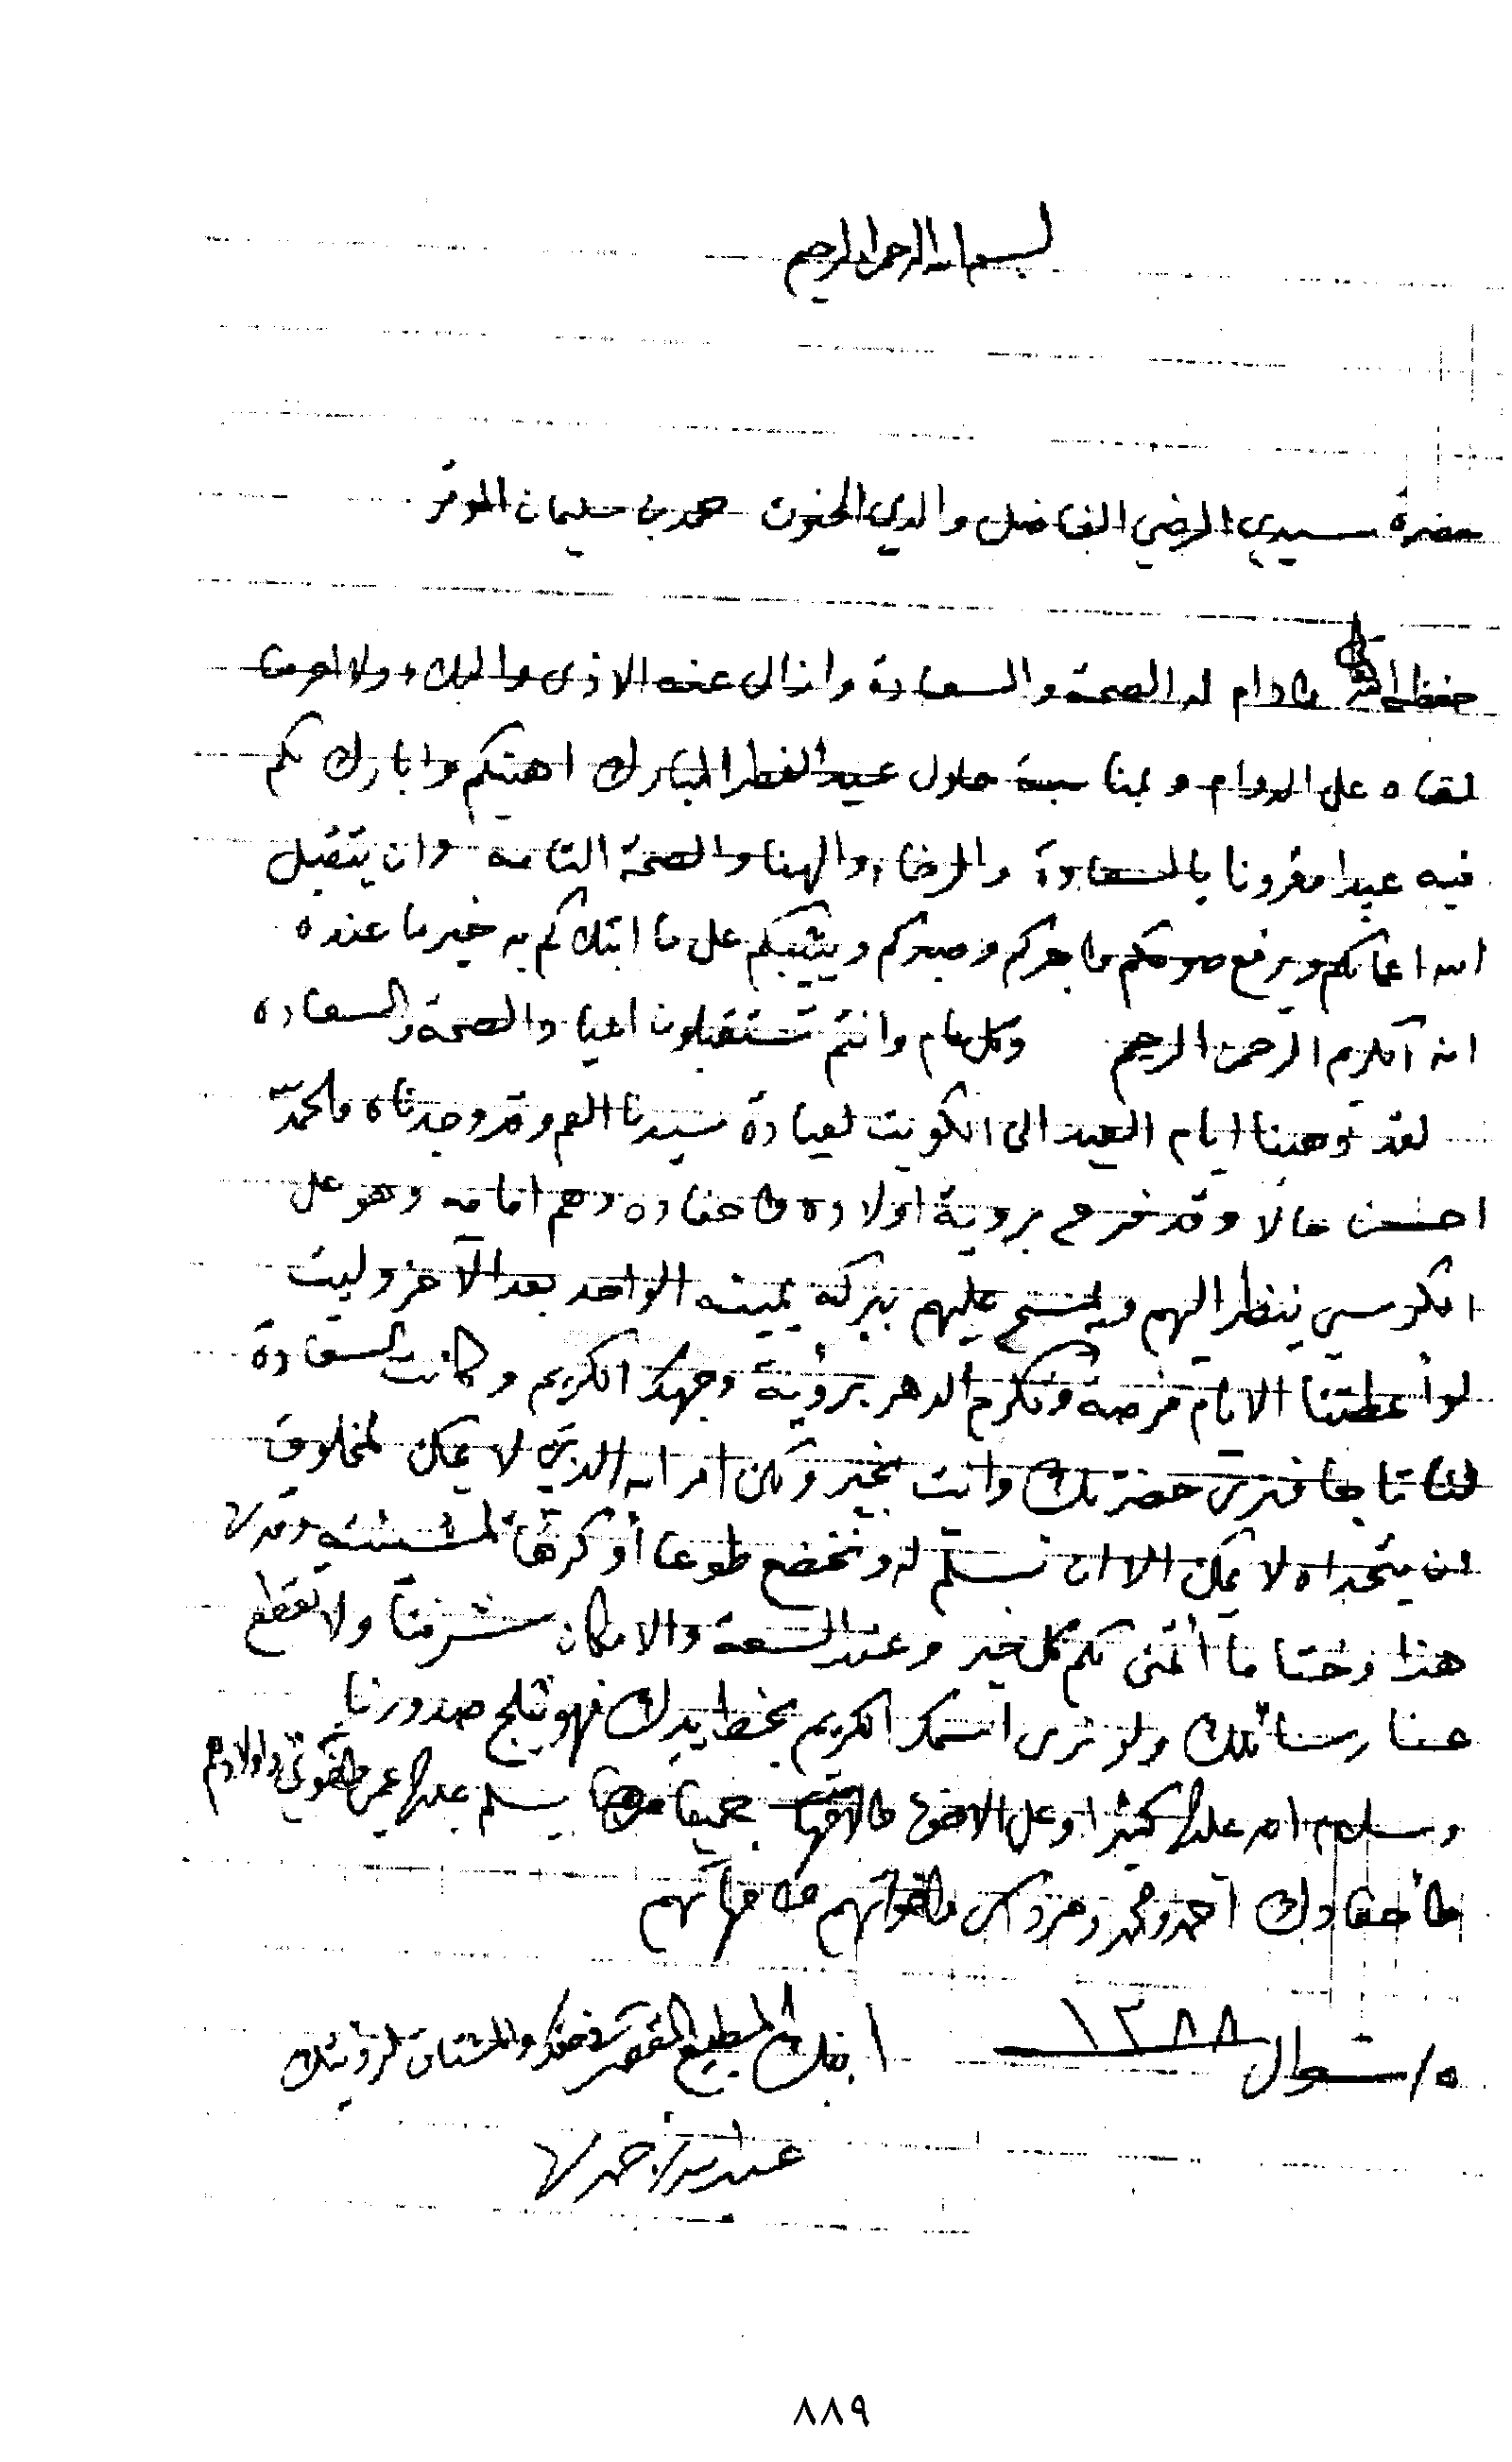 بسم الله الرحمن الرحيم
حضرة سيدي الرضي الفاضل والدي الحنون حمد بن سليمان الموقر
حفظه الله وادام له الصحة والسعادة وازال عنه الاذى والبلاء ولا احرمنا
لقاه على الدوام وبمناسبة حلول عيد الفطر المبارك اهنيكم وابارك لكم
فيه عيدا مقرونا بالسعادة والرخاء والهنا والصحة التامه وان يتقبل
الله اعمالكم ويرفع صومكم واجركم وصبركم ويثيبكم على ما ابتلاكم به خير ما عنده
انه اكرم الرحمن الرحيم وكل عام وانتم تستقبلون اعياد الصحة والسعاده
لقد ذهبنا ايام العيد الى الكويت لعيادة سيدنا العم وقد وجدناه والحمد لله
احسن حالا وقد فرح بروية اولاده واحفاده وهم امامه وهو على
الكرسي ينظر اليهم ويمسح عليهم ببركة يمينه الواحد بعد الآخر وليت
لو أعطتنا الايام فرصة وتكرم الدهر برؤية وجهك الكريم وكانت السعادة
لنا تا بها فنرى حضرتك وانت بخير ولكن امر الله الذي لا يمكن لمخلوق
ان يتحداه لا يمكن الا ان نسلم له ونخضع طوعا أو كرها لمشيئته وقدره
هذا وختاما أتمنى لكم كل خير وعند السعة والامكان شرفنا ولا تقطع
عنا رسائلك ولو نرى اسمك الكريم بخط يدك فهو يثلج صدورنا
وسلام الله عليك كثيرا وعلى الاخوة جميعا يسلم عليك عمي واخوتي واولادهم
وأحفادك أحمد ومحمد واخواتهم
٥/ شوال ١٣٨٨ ابنك المطيع المقصر في حقك والمشتاق لرؤيتك